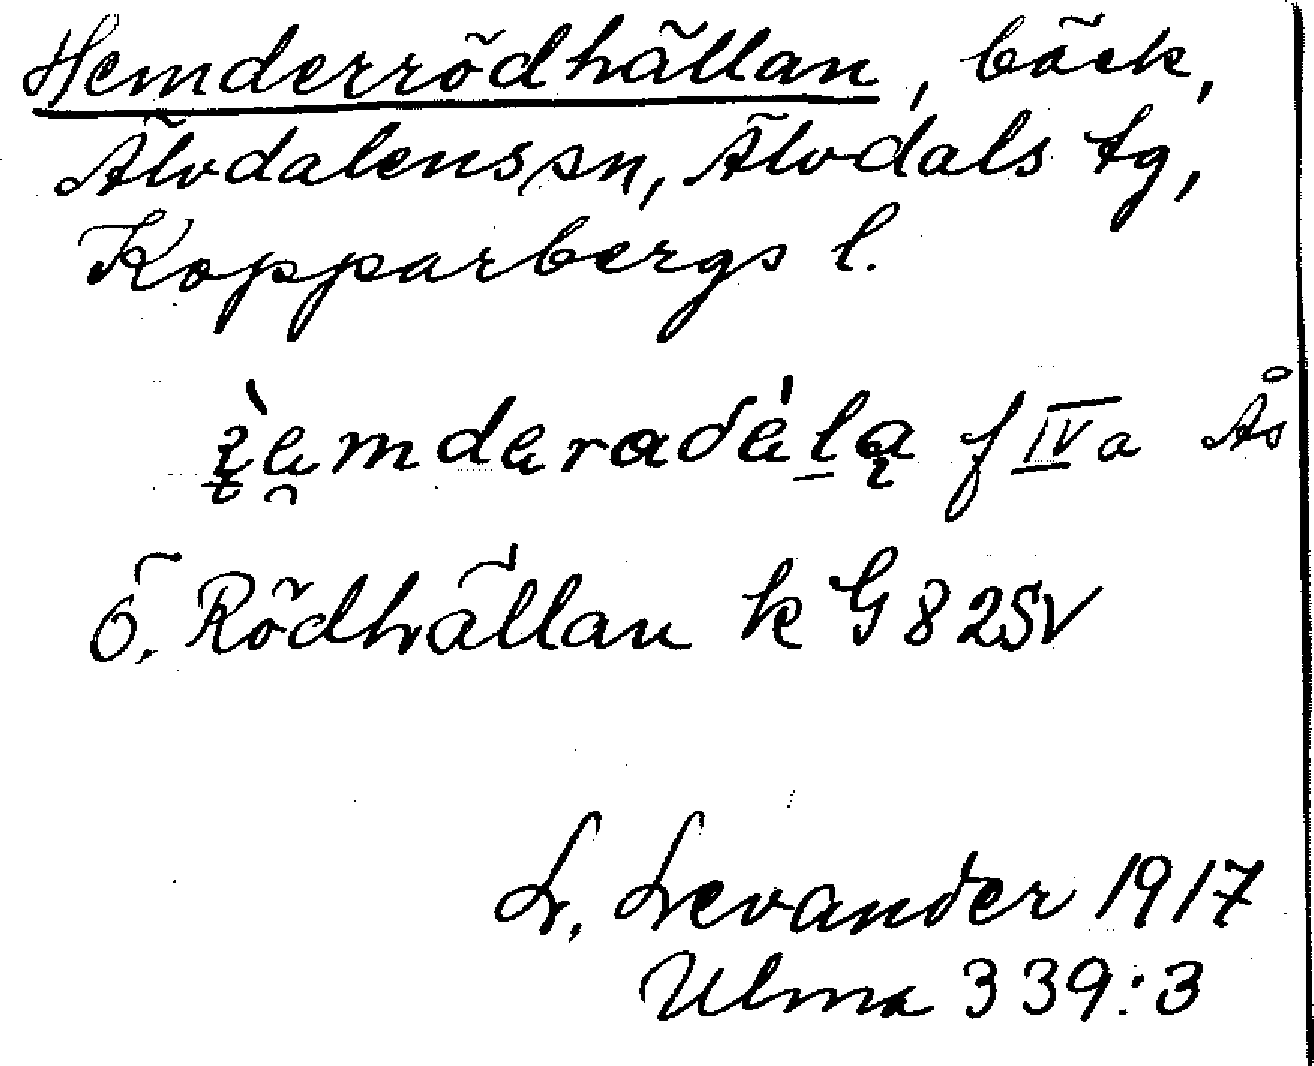 Hemderrödhällan, bäck,
Älvdalens sn, Älvdals tg,
Kopparbergs l.
f IV a Ås
Ö. Rödhällan k G 82SV
L. Levander 1917
Ulma 339:3